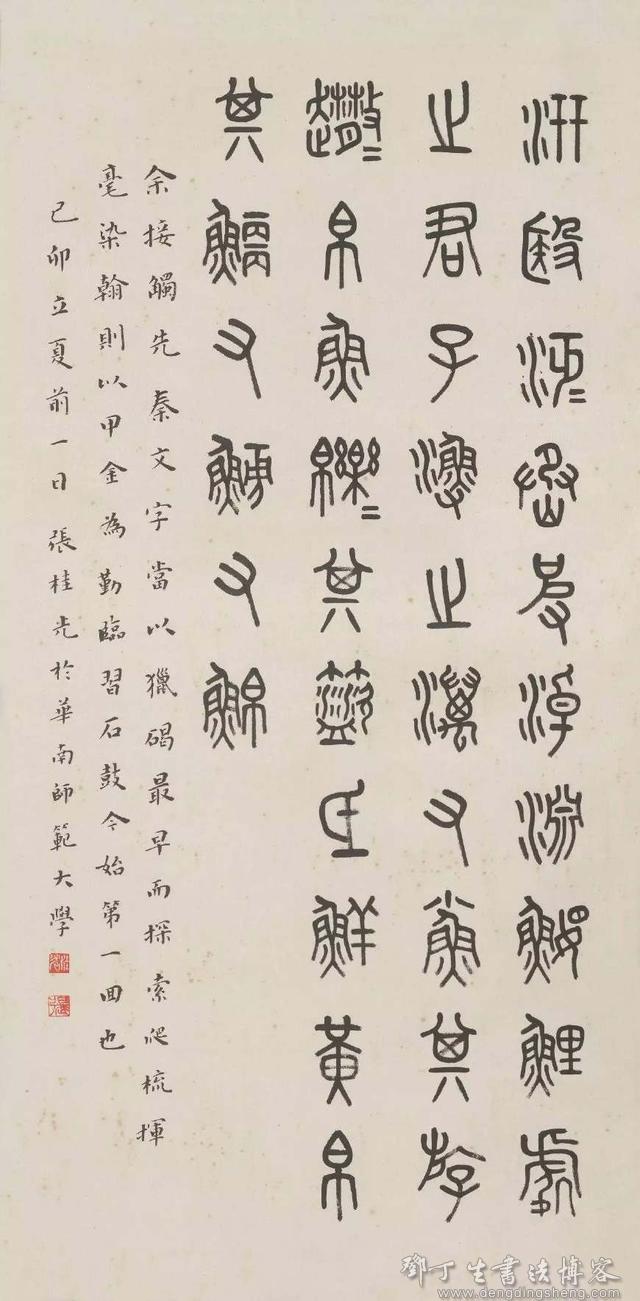 汧殹沔〓烝皮淖淵鰋鯉處
之君子漁之澫又小魚其斿
〓帛魚皪〓其盜氐鮮黃帛
其鯾又鰟又鮊
余接觸先秦文字當以獵碣最早而探索爬梳揮
毫染翰則以甲金為勤臨習石鼓今始第一回也
己卯立夏前一日張桂光於華南師範大學
鄧丁生書法博客
www.dengdingsheng.com